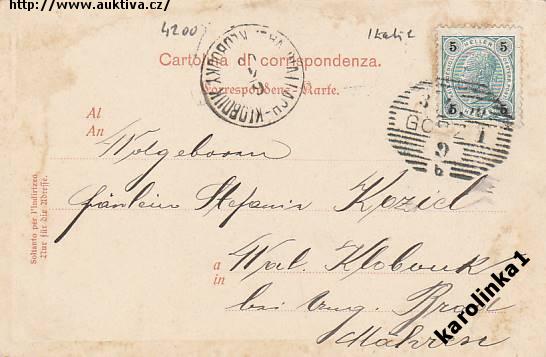 http://www.auktiva.cz/
4200
Italie
Cartolina di corrispondenza.
Correspondenz-Karte.
5 HELLER 5
5 5
GÖRZ 1
9
WALLACH.-KLOBOUK
Al
An
Wolgeboren
Fräulein Stefanie Kozicl
a
in
Wal. Klobouk
bei Ung. Brod
Mähren
Soltanto per l'indirizzo.
Nur für die Adresse.
karolinka1